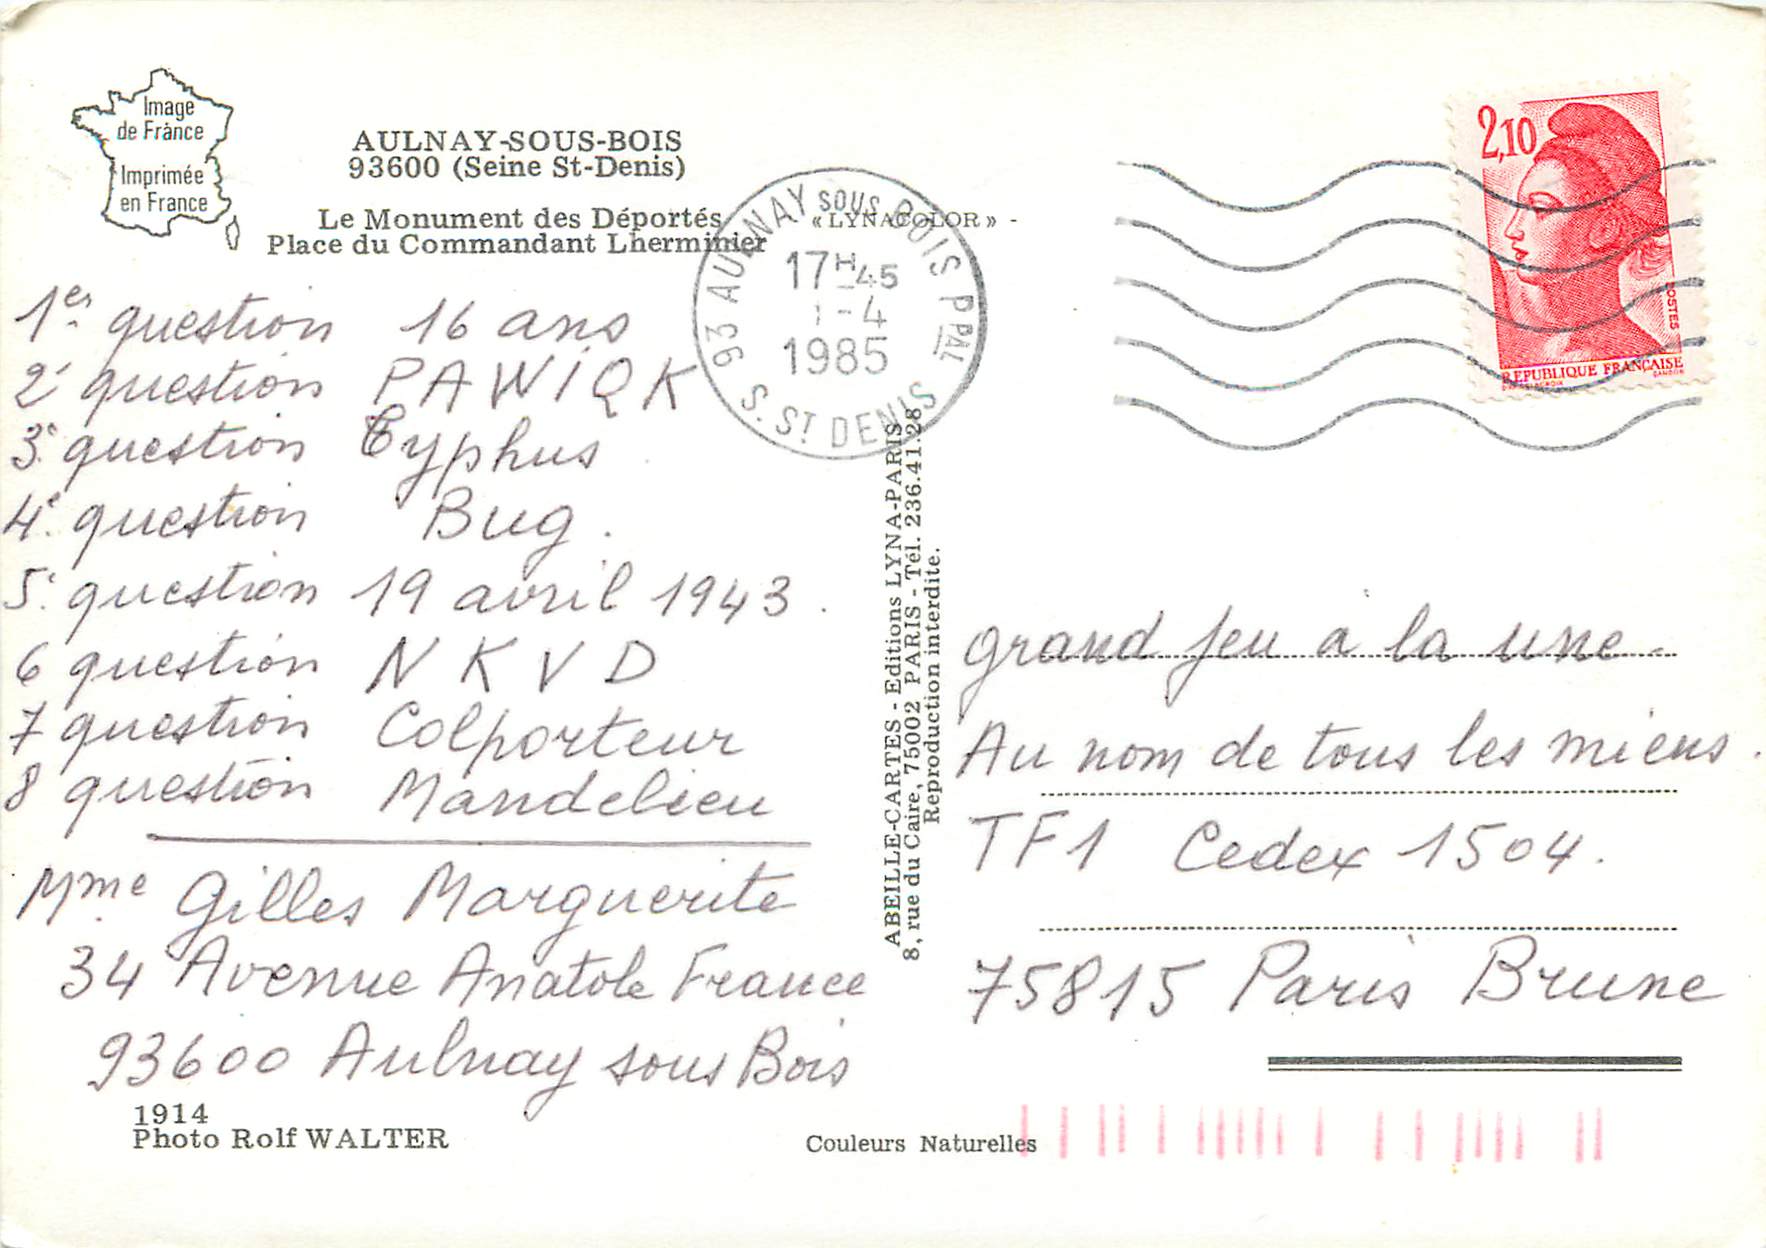 Image
de France
Imprimée
en France
AULNAY-SOUS-BOIS
93600 (Seine St-Denis)
Le Monument des Déportés
Place du Commandant Lherminier
« LYNACOLOR » -
93 AULNAY SOUS BOIS PPAL
17H45
1-4
1985
S. ST DENIS
2,10
POSTES
REPUBLIQUE FRANÇAISE
GANDON
1er question 16 ans
2e question PAWIQK
3e question Typhus
4e question Bug.
5e question 19 avril 1943.
6 question NKVD
7 question Colporteur
8 question Mandelieu
Mme Gilles Marguerite
34 Avenue Anatole France
93600 Aulnay sous Bois
1914
Photo Rolf WALTER
ABEILLE-CARTES - Editions LYNA-PARIS
8, rue du Caire, 75002 PARIS - Tél. 236.41.28
Reproduction interdite.
grand jeu à la une.
Au nom de tous les miens.
TF1 Cedex 1504.
75815 Paris Brune
Couleurs Naturelles